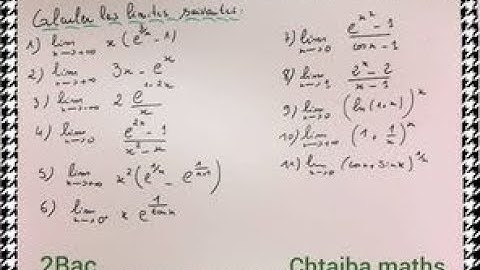 Calculer les limites suivantes.
1) lim x→+∞ x(e^(3/x) - 1)
2) lim x→+∞ 3x - e^x
3) lim x→-∞ 2 e^(1-2x)/x
4) lim x→0 (e^(2x) - 1)/(x² - x)
5) lim x→+∞ x²(e^(1/x) - e^(1/(x+1)))
6) lim x→0⁺ x e^(1/tan x)
7) lim x→0 (e^(x²) - 1)/(cos x - 1)
8) lim x→1 (2^x - 2)/(x - 1)
9) lim x→0 (ln(1+x))^x
10) lim x→0 (1 + 1/x)^x
11) lim x→0 (cos x + sin x)^(1/x)
2Bac
Chtaiba maths